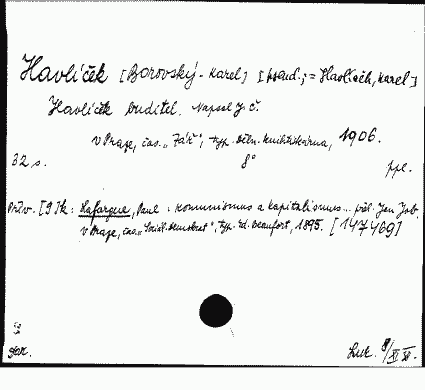 Havlíček [Borovský - Karel] [pseud.; = Havlíček, Karel]
Havlíček buditel. Napsal J. Č.
v Praze, čas. „Zář“, typ. Děln. knihtiskárna, 1906.
32 s. 8° ppl.
Přív. [9] k: Lafargue, Paul : Kommunismus a kapitalismus... přel. Jan Job.
v Praze, čas. „Sociál. Demokrat“, typ. Ed. Beaufort, 1895. [147469]
Luk. 9/XI